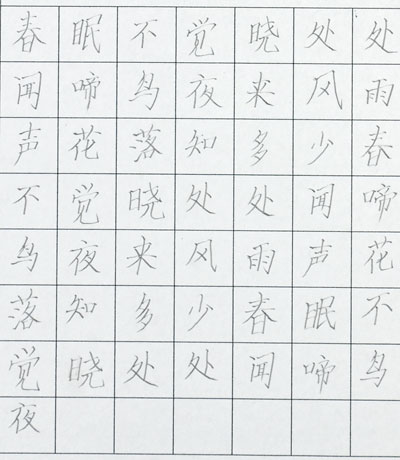 春眠不觉晓处处
闻啼鸟夜来风雨
声花落知多少春
不觉晓处处闻啼
鸟夜来风雨声花
落知多少春眠不
觉晓处处闻啼鸟
夜